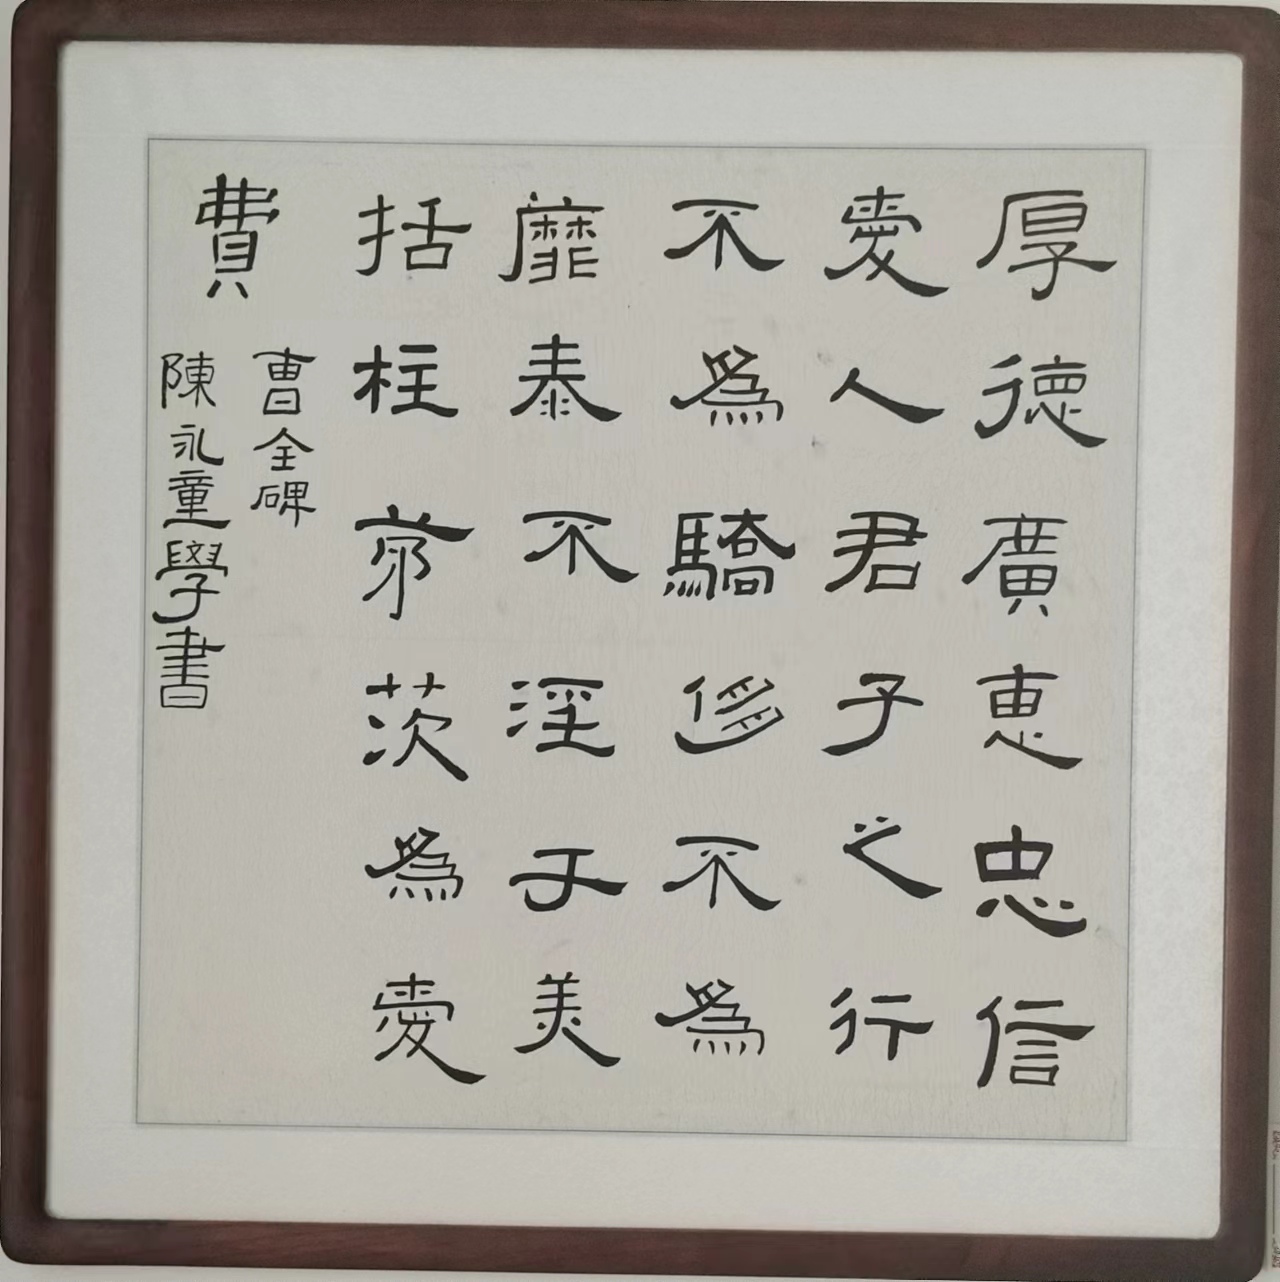 厚德廣惠忠信
愛人君子之行
不為驕侈不為
靡泰不淫于美
括柱茅茨為愛
費
曹全碑
陳永童學書